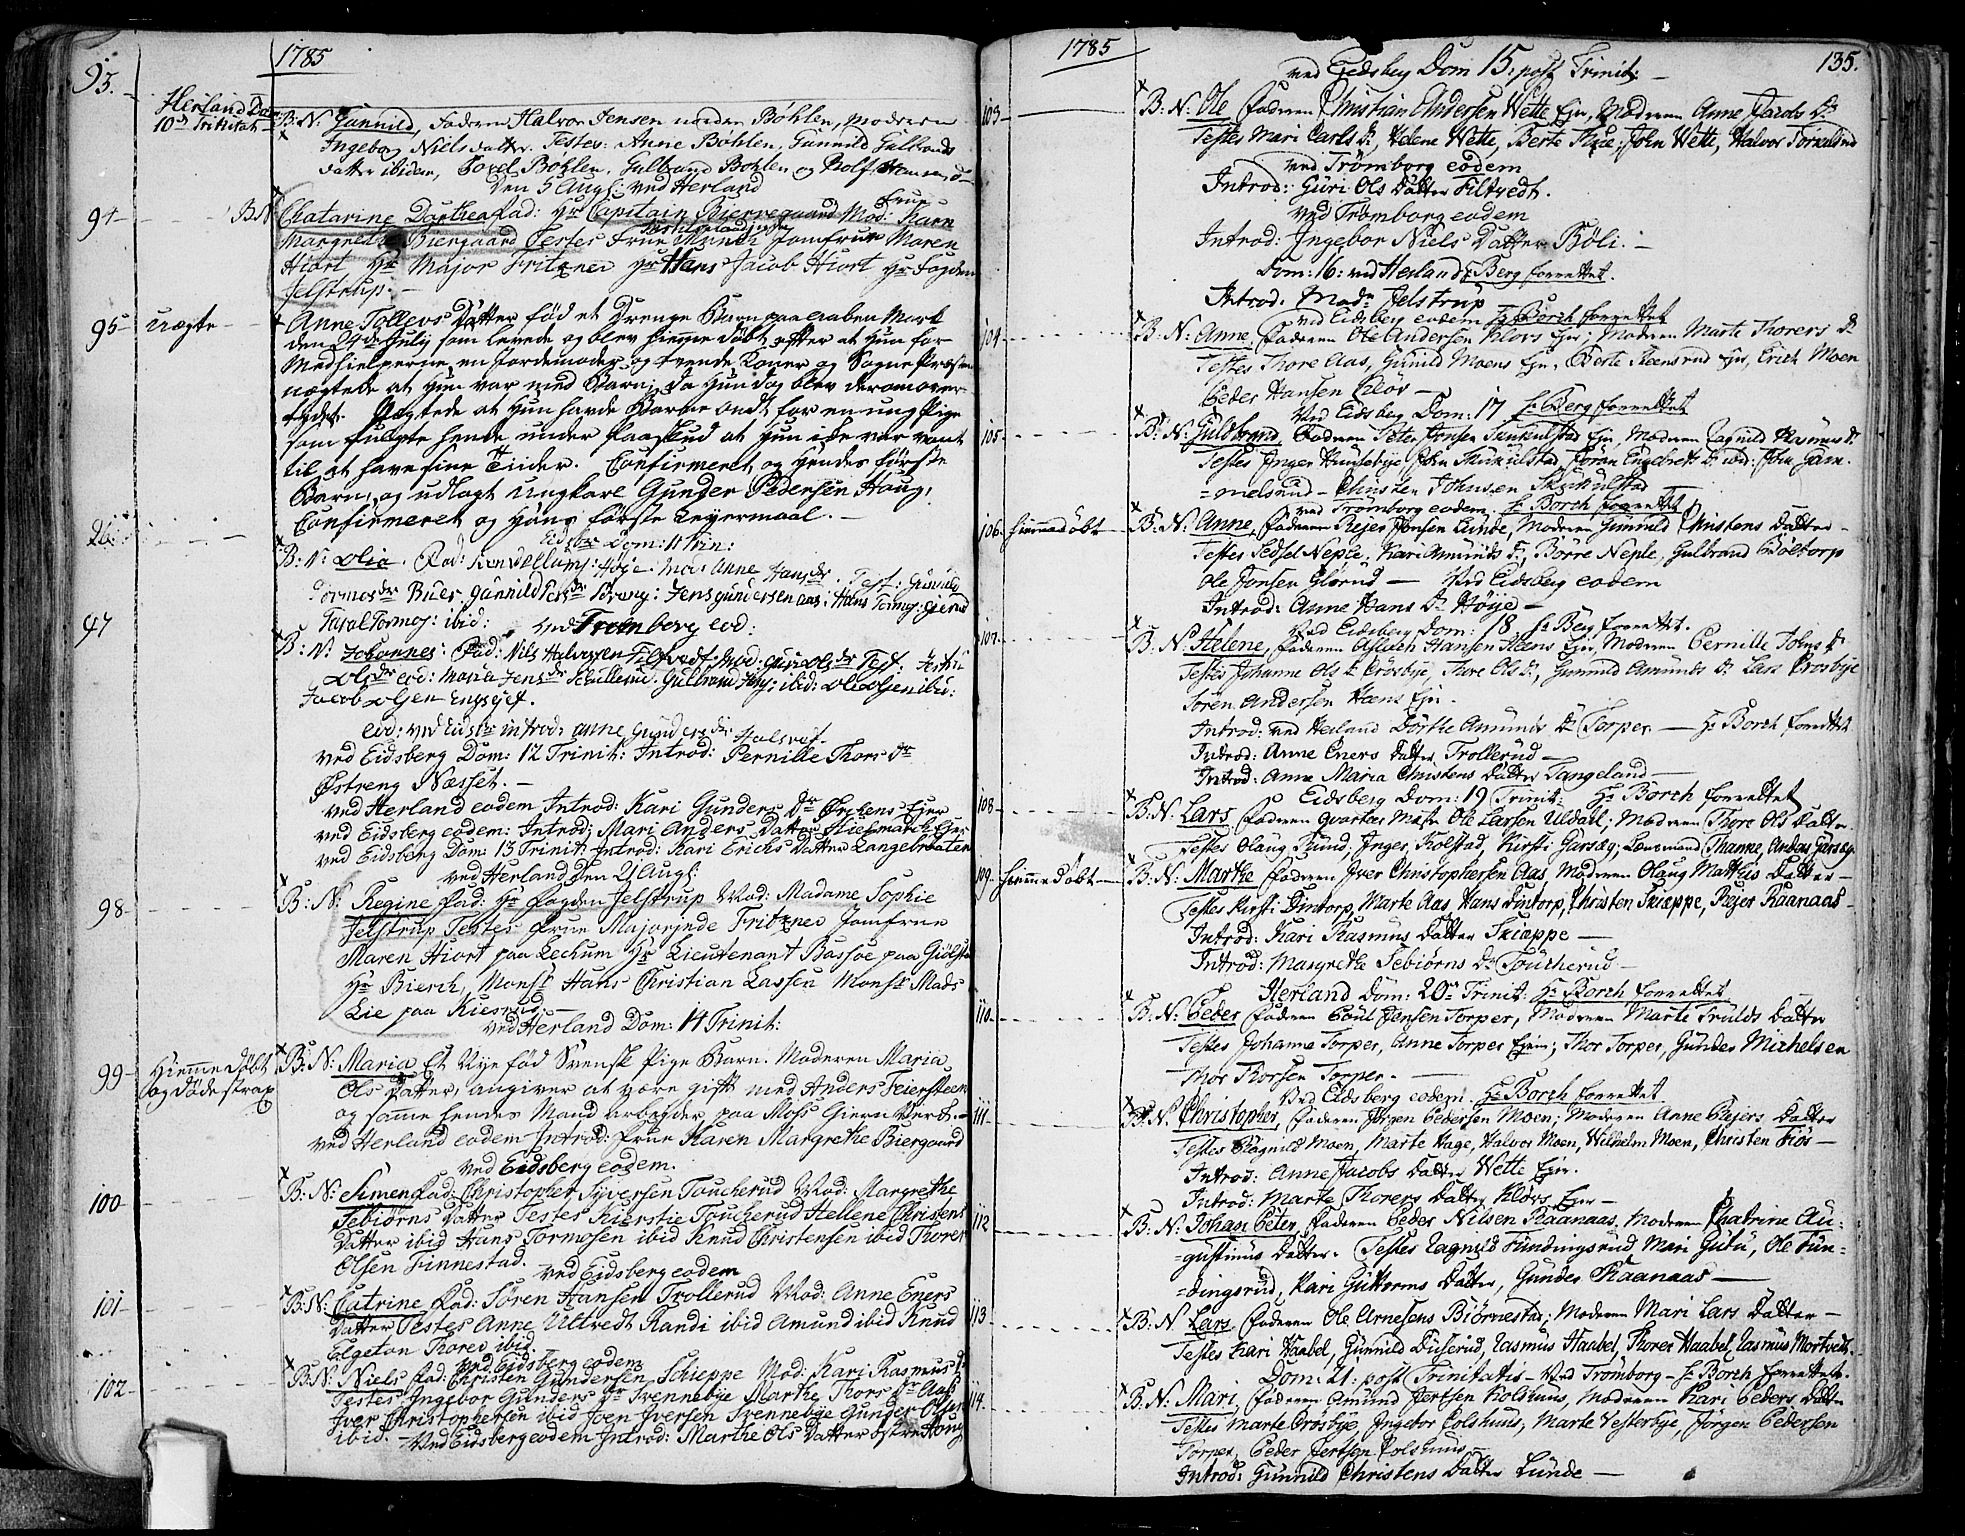 1785
93.
Herland Dom
10de Trinitat:
B: N: Gunnild, Faderen Halvor Jensen under Bøhlen, Moderen
Ingebor Niels datter. Testes: Anne Bøhlen, Gunnild Gulbrands
datter ibidem, Bohlen, Gulbrand Bohlen og Rolf Hansen
Den 5 Augs: ved Herland
94 B.N. Chatarine Dorthea Fad: Hr Capitain Bierregaard Mod: Frue Karn
Margrethe Biergaard Testes Frue Jomfrue Maren
Hiort Hr Major Fritzner Hr Hans Jacob Hiort Hr Fogden
Jelstrup. –
95 uægte – Anne Tollevs Datter fød et Drenge Barn paa aaben Mark
den 24de July som levede og blev hiemme døbt efter at hun for
Medhielperne en Jordemoder og tvende Koner og Sogne Præsten
nægtede at hun var med Barn, da hun dog blev derom over-
tydet. Nægtede at hun havde Barne ondt for en ung Pige
som fulgte hende under Paaskud at hun ikke var vant
til at have sine Tiider. Confirmeret og hendes første
Barn, og udlagt ungkarl Gunder Pedersen Houg,
Confirmeret og Hans første Leyermaal. –
Eidsbr Dom: 11 Trin:
96. B: N: Olia. Fad: Høje. Mod: Anne Hansdr. Test: Gunnild
Tormosdr Buer. Gunnild : Jens Gundersen Aas: Hans Tormos:
Tormos: ibid:
ved Trømborg eod:
97 B: N: Johannes: Fad: Nils Halvorsen Tiltvedt. Mod: Guri Olsdr Test:
Olsdr eod: Maria Jensdr : Gulbrand Jens: ibid: Ole Olsen ibid:
Jacob Olsen
eod: ved Eidsbr introd: Anne Gundersdr
ved Eidsberg Dom: 12 Trinit: Introd: Pernille Thors Dtr
Østreng Næsset. –
ved Herland eodem Introd: Kari Gunders Dr
ved Eidsberg eodem: Introd: Mari Anders Datter
ved Eidsberg Dom: 13 Trinit: Introd: Kari Erichs Datter Langebraaten
ved Herland den 21 Augs:
98 B: N: Regine Fad: Hr Fogden Jelstrup Mod: Madame Sophie
Jelstrup Testes Frue Majorinde Fritzner Jomfrue
Maren Hiort paa Lechum Hr Lieutenant Bassøe paa
Hr Bierch, Monsr Hans Christian Lassen Monsr Mads
Lie paa Kiesrud –
ved Herland Dom: 14 Trinit:
99 – Hiemme Døbt
og døde strax
B: N: Maria Et nye fød Svensk Pige Barn. Moderen Maria
Ols Datter, angiver at være gift med Anders Feiersteen
og samme hendes Mand arbeyder paa Moss Giern Verk –
ved Herland eodem Introd: Frue Karen Margrethe Biergaard
ved Eidsberg eodem.
100 B: N: Simen Fad: Christopher Syversen Toucherud Mod: Margrethe
Tebiørns Datter Testes Kierstie Toucherud Hellene Christens
Datter ibid Hans Tormosen ibid Knud Christensen ibid Thorer
Olsen Finnestad.
ved Eidsberg eodem
101 B:N: Catrine Fad: Søren Hansen Trollerud Mod: Anne Eners
Datter Testes Anne Ultvedt Randi ibid Amund ibid Knud
Elgeton Thorer ibid.
ved Eidsberg eodem
102 B: N: Niels Fad: Christen Gundersen Schieppe Mod: Kari Rasmus D
Testes Ingebor Gunders Dr Svennebye Marthe Thors Dr Aas
Iver Christophersen ibid Joen Iversen Svennebye Gunder Olsen
ibid. – Ved Eidsberg eodem Introd: Marthe Ols Datter Østre Houg
1785
135.
ved Eidsberg Dom 15. post Trinit: –
103 B: N: Ole Faderen Christian Andersen Wette Ejer, Moderen Anne Jacobs Dr
Testes Mari Carls Dr, Helene Wette, Berte , John Wette, Halvor Torkelsrud
ved Trømborg eodem
Introd: Guri Ols Datter Tiltvedt.
ved Trømborg eodem
Introd: Ingebor Niels Datter Bøli. –
Dom: 16: ved Herland Hr Berg forrettet.
Introd: Madm Jelstrup
ved Eidsberg eodem Hr Borch forrettet
104 B: N: Anne, Faderen Ole Andersen Kløvs Ejer, Moderen Marte Thorers Dr
Testes Thore Aas, Gunild Moens Ejer, Berte Steensrud Ejer, Erich Moen
Peder Hansen Kløv –
Ved Eidsberg Dom: 17 Hr Berg forrettet
105 B: N: Guldbrand, Faderen Peter Jensen Ejer, Moderen Ragnild Rasmus Dr
Testes Inger Huusebye John , Søren Engebrets Dr ibid: John Gam-
=melsrud – Christen Johnsen
ved Trømborg eodem. Hr Borch forrettet
106 hiemmedøbt – B: N: Anne, Faderen Rejer Jonsen Lunde, Moderen Gunnild Christens Datter –
Testes Sidsel Neple, Kari Amunds D, Børre Neple, Gulbrand Bøltorp
Ole Jonsen Glørud – Ved Eidsberg eodem
Introd: Anne Hans Dr Høije –
Ved Eidsberg Dom: 18 Hr Berg forrettet.
107 B: N: Helene, Faderen Aslach Hansen Heens Ejer, Moderen Pernille Johns Dr
Testes Johanne Ols Dr Prøsbye, Thore Ols Dr, Gunnild Amunds Dr Lars Prosbye
Søren Andersen Hæns Ejer.
Introd: ved Herland Dorthe Amunds Dr Torper – Hr Borch forrettet
Introd: Anne Eners Datter Trollerud –
Introd: Anne Maria Christens Datter Tangeland –
Eidsberg Dom: 19 Trinit: Hr Borch forrettet
108 B: N: Lars, Faderen Qvarter Mestr Ole Larsen Uldahl, Moderen Thore Ols Datter
Testes Olaug Rund, Inger Tolstad, Kirsti Garseg, Lensmand Thanne, Andas Garseg.
109 hiemmedøbt – B: N: Marthe Faderen Iver Christophersen Aas, Moderen Olaug Matthis Datter –
Testes Kirsti Dintorp, Marte Aas, Hans Dintorp, Christen Skieppe, Rejer Raanaas –
Introd: Kari Rasmus Datter Skieppe –
Introd: Margrethe Tebiørns Dr Toucherud –
Herland Dom: 20de Trinit: Hr Borch forrettet
110 B: N: Peder Faderen Poul Jensen Torper, Moderen Marte Trulds Datter
Testes Johanne Torper, Anne Torper Ejer, Thor Torper, Gunder Michelsen
Thor Thorsen Torper. –
Ved Eidsberg eodem. Hr Borch forrettet
111 B: N: Christopher, Faderen Jørgen Pedersen Moen, Moderen Anne Rejers Datter
Testes Ragnild Moen, Marte Hage, Halvor Moen, Wilhelm Moen, Christen Fiøs –
Introd: Anne Jacobs Datter Wette Ejer.
Introd: Marte Thorers Datter Kløvs Ejer –
112 B: N: Johan Peter, Faderen Peder Nilsen Raanaas, Moderen Chatrine Au-
=gustinus Datter. Testes Ragnild Fundingsrud Mari Gutu, Ole Fun-
=dingsrud, Kari Guttorms Datter, Gunder Raanaas –
113 B: N: Lars Faderen Ole Arnesens Biørnestad, Moderen Mari Lars Datter –
Testes Kari Haabel, Gunnild Duserud, Rasmus Haabel, Thorer Haabel, Rasmus Mortvedt.
Dom: 21. post Trinitatis – Ved Trømborg – Hr Borch forrettet.
114 B: N: Mari, Faderen Amund Jertsen Kolshuus, Moderen Kari Peders Datter
Testes Marte Prosbye, Ingebor Colshuus, Marte Vesterbye, Jørgen Pedersen
Torper, Peder Jertsen Colshuus
Introd: Gunnild Christens Datter Lunde –